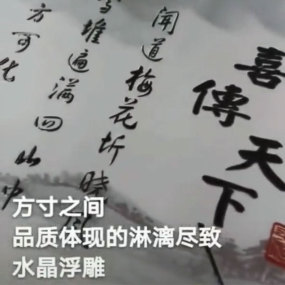 喜傳天下
聞道梅花坼曉
堆遍滿四山中
方可化
方寸之间
品质体现的淋漓尽致
水晶浮雕